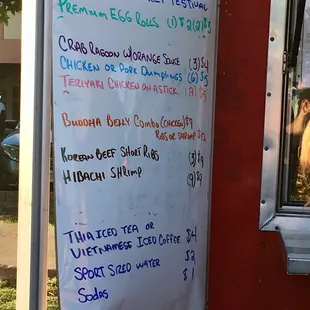 Festival
Premium Egg Rolls (1) $2 (2) $3
Crab Ragoon w/Orange Sauce (3) $4
Chicken or Pork Dumplings (6) $5
Teriyaki Chicken on a stick (2) $5
Buddha Belly Combo (chicken) $9
Ribs or shrimp $12
Korean Beef Short Ribs (3) $9
Hibachi Shrimp (9) $9
Thai Iced Tea or $4
Vietnamese Iced Coffee
Sport Sized Water $2
Sodas $1